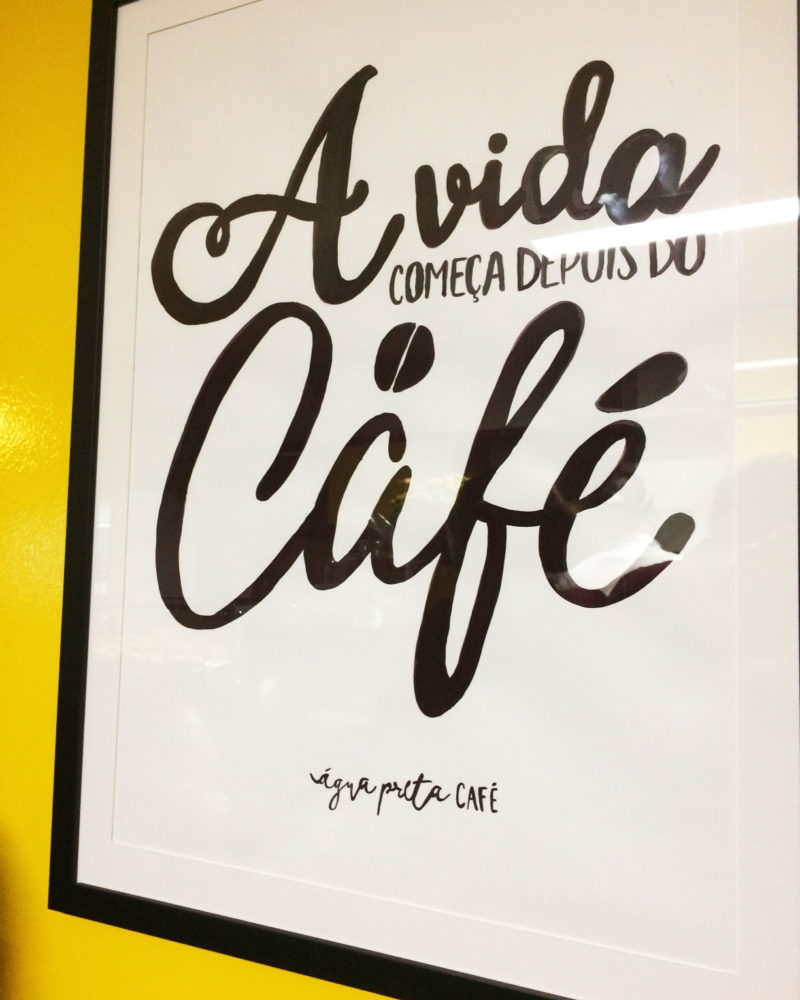 A vida
COMEÇA DEPUIS DO
Café
água preta CAFÉ